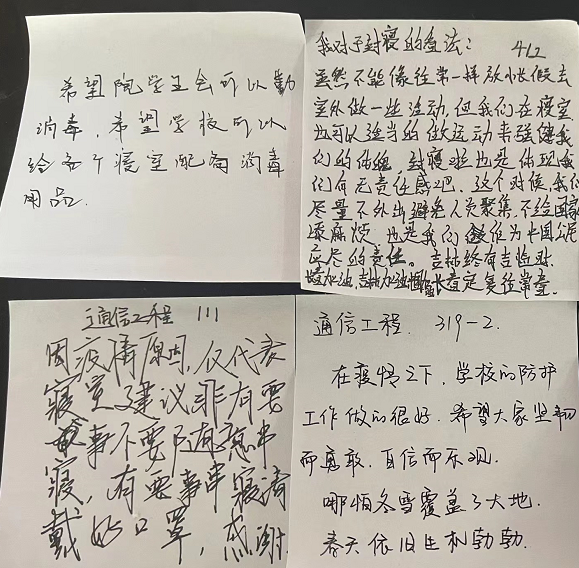 希望院学生会可以勤
消毒，希望学校可以
给各个寝室配备消毒
用品.
我对于封寝的看法： 412
虽然不能像往常一样放小长假去
室外做一些活动，但我们在寝室
也可以适当的做运动来强健我
们的体魄，封寝也是体现我
们有无责任感吧，这个时候，我们
尽量不外出避免人员聚集，不给国家
添麻烦，也是我们做为中国公民
应尽的责任。吉林终有吉临时.
加油，吉林加油，长春定复往常春.
通信工程 111
因疫情原因，仅代表
寝室建议非有要
事不要随意串
寝，有要事串寝请
戴好口罩，感谢.
通信工程. 319-2.
在疫情之下，学校的防护
工作做的很好. 希望大家坚韧
而勇敢. 自信而乐观.
哪怕冬雪覆盖了大地.
春天依旧生机勃勃.